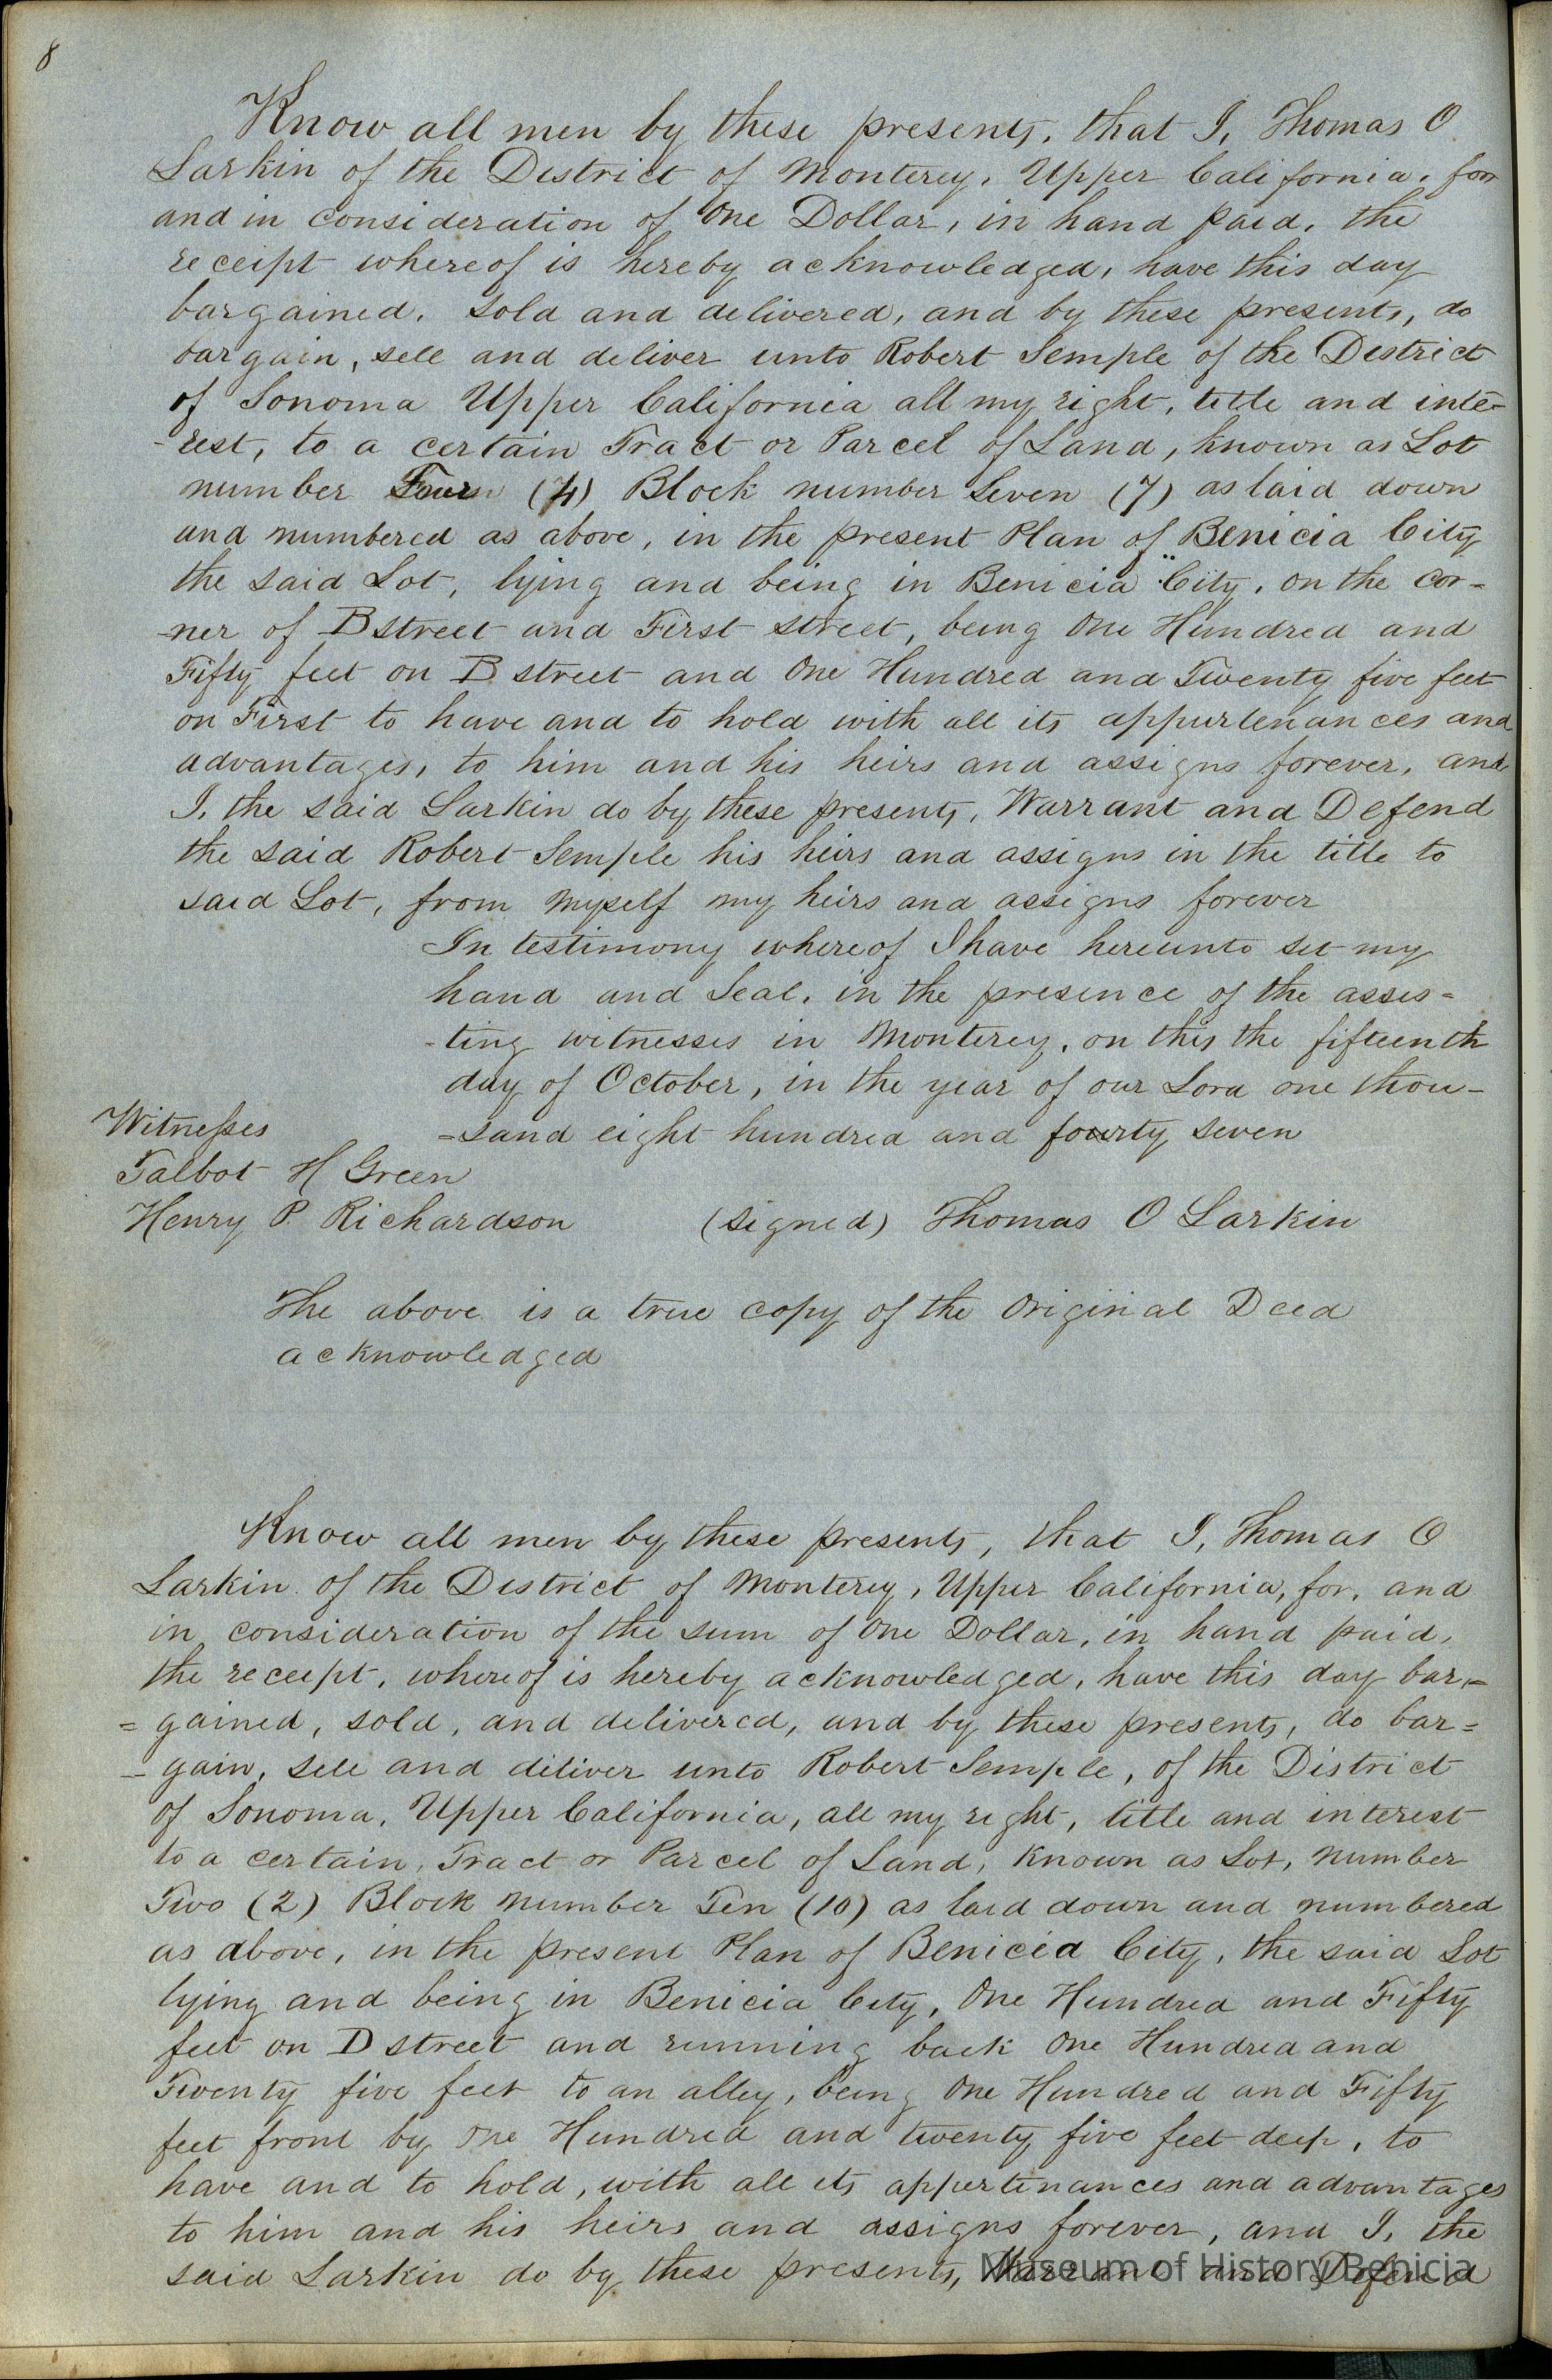 8
Know all men by these presents, that I, Thomas O
Larkin of the District of Monterey, Upper California, for
and in consideration of One Dollar, in hand paid, the
receipt whereof is hereby acknowledged, have this day
bargained, sold and delivered, and by these presents, do
bargain, sell and deliver unto Robert Semple of the District
of Sonoma Upper California all my right, title and inte-
-rest, to a certain Tract or Parcel of Land, known as Lot
number Four (4) Block number Seven (7) as laid down
and numbered as above, in the present Plan of Benicia City
the said Lot, lying and being in Benicia City, on the cor-
-ner of B street and First street, being One Hundred and
Fifty feet on B street and One Hundred and Twenty five feet
on First to have and to hold with all its appurtenances and
advantages, to him and his heirs and assigns forever, and
I, the said Larkin do by these presents, Warrant and Defend
the said Robert Semple his heirs and assigns in the title to
said Lot, from myself my heirs and assigns forever
In testimony whereof I have hereunto set my
hand and Seal, in the presence of the asses-
-ting witnesses in Monterey, on this the fifteenth
day of October, in the year of our Lord one thou-
=sand eight hundred and fourty seven
Witnesses
Talbot H Green
Henry P. Richardson (signed) Thomas O Larkin
The above is a true copy of the Original Deed
acknowledged
Know all men by these presents, that I, Thomas O
Larkin of the District of Monterey, Upper California, for, and
in consideration of the sum of One Dollar, in hand paid,
the receipt, whereof is hereby acknowledged, have this day bar-
=gained, sold, and delivered, and by these presents, do bar=
-gain, sell and diliver unto Robert Semple, of the District
of Sonoma, Upper California, all my right, title and interest
to a certain, Tract or Parcel of Land, known as Lot, number
Two (2) Block number Ten (10) as laid down and numbered
as above, in the present Plan of Benicia City, the said Lot
lying and being in Benicia City, One Hundred and Fifty
feet on D street and running back One Hundred and
Twenty five feet to an alley, being One Hundred and Fifty
feet front by One Hundred and twenty five feet deep, to
have and to hold, with all its appertinances and advantages
to him and his heirs and assigns forever, and I, the
said Larkin do by these presents, Warrant and Defend
Museum of History Benicia